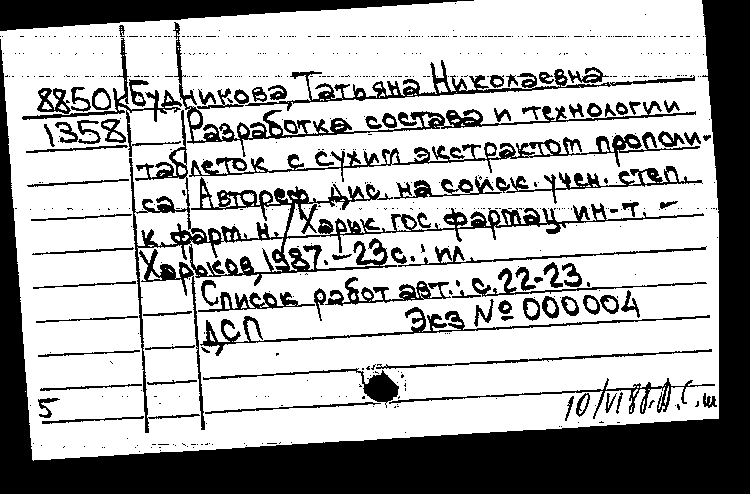 8850к Будникова, Татьяна Николаевна
1358 Разработка состава и технологии
таблеток с сухим экстрактом прополи-
са: Автореф. дис. на соиск. учен. степ.
к. фарм. н. / Харьк. гос. фармац. ин-т. -
Харьков, 1987. - 23 с. : ил.
Список работ авт.: с. 22-23.
ДСП Экз № 000004
5 10/VI 88.